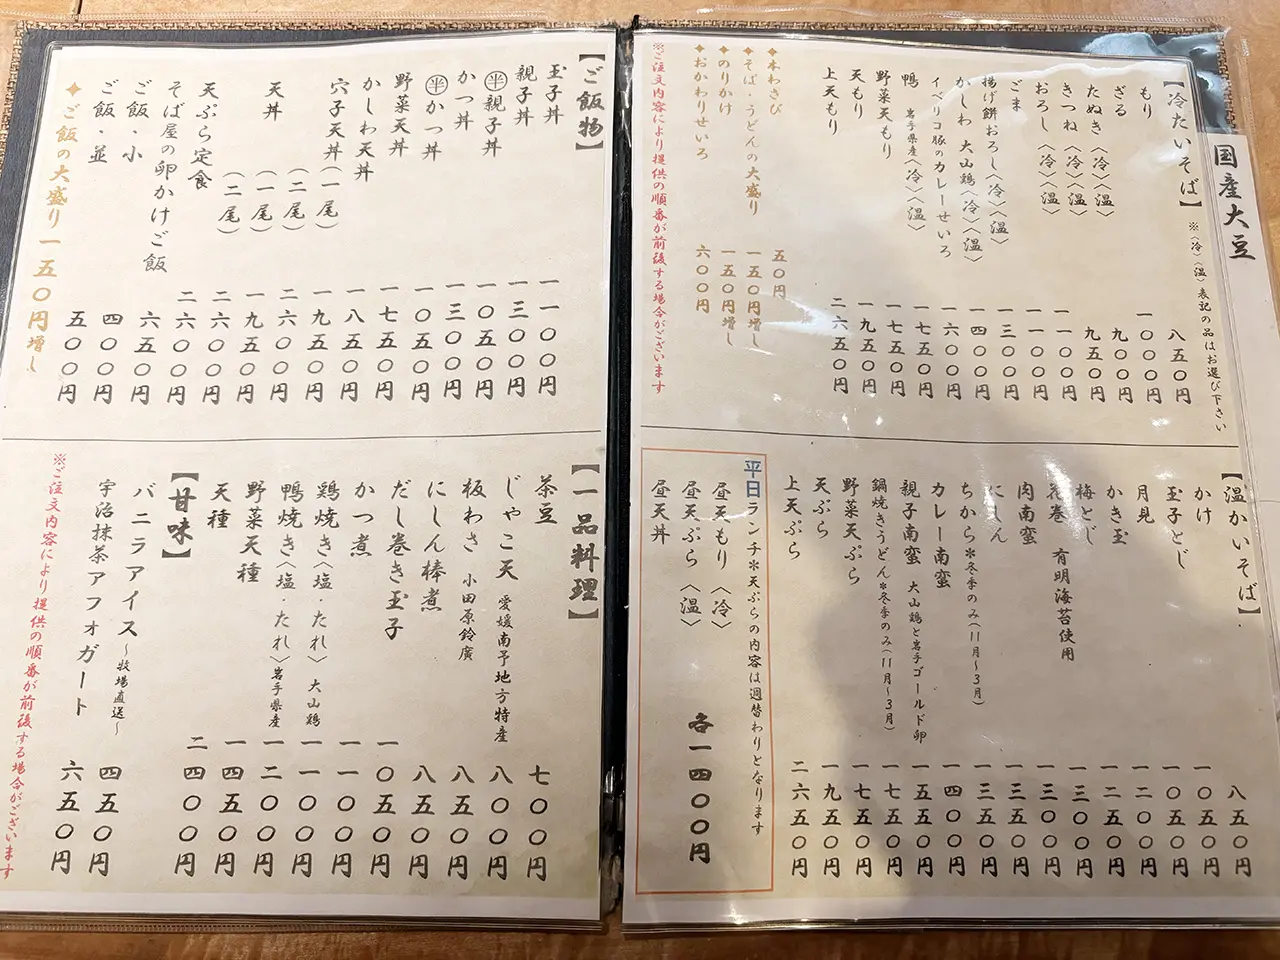 国産大豆
【冷たいそば】
※〈冷〉〈温〉表記の品はお選び下さい
もり 八五〇円
ざる 一〇〇〇円
たぬき〈冷〉〈温〉 九〇〇円
きつね〈冷〉〈温〉 九五〇円
おろし〈冷〉〈温〉 一一〇〇円
ごま 一一〇〇円
揚げ餅おろし〈冷〉〈温〉 一三〇〇円
かしわ 大山鶏〈冷〉〈温〉 一四〇〇円
イベリコ豚のカレーせいろ 一六〇〇円
鴨 岩手県産〈冷〉〈温〉 一七五〇円
野菜天もり 一七五〇円
天もり 一九五〇円
上天もり 二六五〇円
✦本わさび 五〇円
✦そば・うどんの大盛り 一五〇円増し
✦のりかけ 一五〇円増し
✦おかわりせいろ 六〇〇円
※ご注文内容により提供の順番が前後する場合がございます
【温かいそば】
かけ 八五〇円
玉子とじ 一〇五〇円
月見 一〇五〇円
かき玉 一二〇〇円
梅とじ 一二五〇円
花巻 有明海苔使用 一三〇〇円
肉南蛮 一三〇〇円
にしん 一三五〇円
ちから＊冬季のみ(11月～3月) 一三五〇円
カレー南蛮 一四〇〇円
親子南蛮 大山鶏と岩手ゴールド卵 一五五〇円
鍋焼きうどん＊冬季のみ(11月～3月) 一七五〇円
野菜天ぷら 一七五〇円
天ぷら 一九五〇円
上天ぷら 二六五〇円
平日ランチ＊天ぷらの内容は週替わりとなります
昼天もり〈冷〉
昼天ぷら〈温〉
昼天丼
各一四〇〇円
【ご飯物】
玉子丼 一一〇〇円
親子丼 一三〇〇円
半親子丼 一〇五〇円
かつ丼 一三〇〇円
半かつ丼 一〇五〇円
野菜天丼 一七五〇円
かしわ天丼 一八五〇円
穴子天丼(一尾) 一九五〇円
(二尾) 二六〇〇円
天丼 (一尾) 一九五〇円
(二尾) 二六〇〇円
天ぷら定食 二六〇〇円
そば屋の卵かけご飯 六五〇円
ご飯・小 四〇〇円
ご飯・並 五〇〇円
✦ご飯の大盛り一五〇円増し
【一品料理】
茶豆 七〇〇円
じゃこ天 愛媛南予地方特産 八〇〇円
板わさ 小田原鈴廣 八五〇円
にしん棒煮 八五〇円
だし巻き玉子 一〇五〇円
かつ煮 一一〇〇円
鶏焼き〈塩・たれ〉大山鶏 一一〇〇円
鴨焼き〈塩・たれ〉岩手県産 一二〇〇円
野菜天種 一四五〇円
天種 二四〇〇円
【甘味】
バニラアイス～牧場直送～ 四五〇円
宇治抹茶アフォガート 六五〇円
※ご注文内容により提供の順番が前後する場合がございます